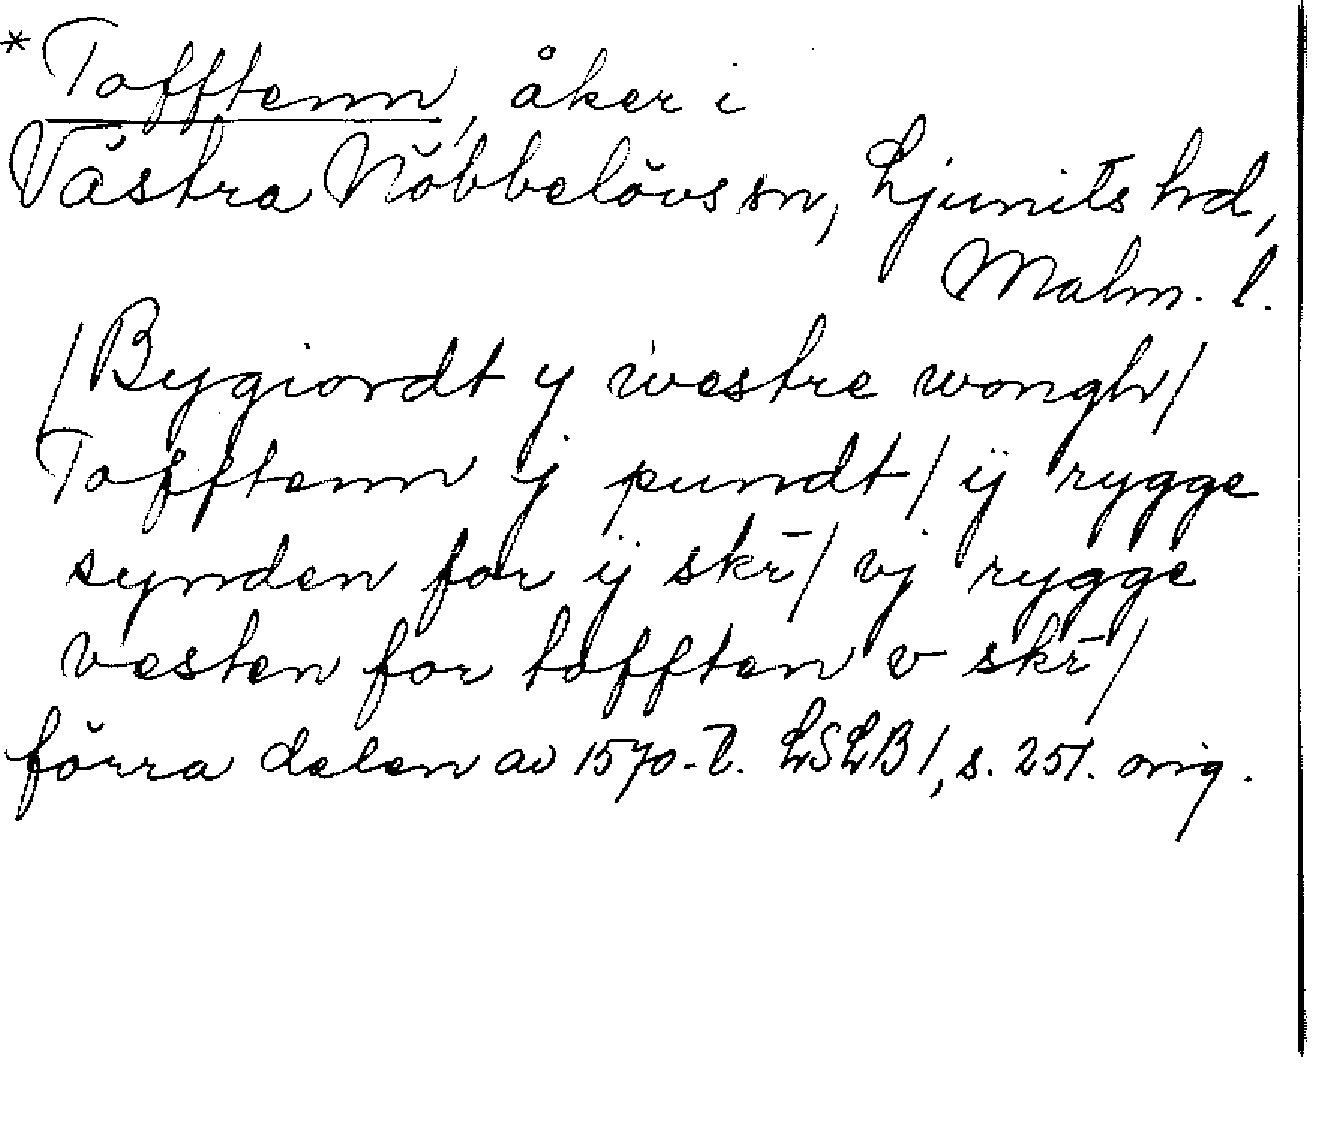 *Tofftenn, åker i
Västra Nöbbelövs sn, Ljunits hd,
Malm. l.
/Bygiordt y westre wongh/
Tofftenn j pundt/ ij rygge
synden for ij skr̄/ vj rygge
vesten for tofften v skr̄/
förra delen av 1570-t. LSLB 1, s. 251. orig.